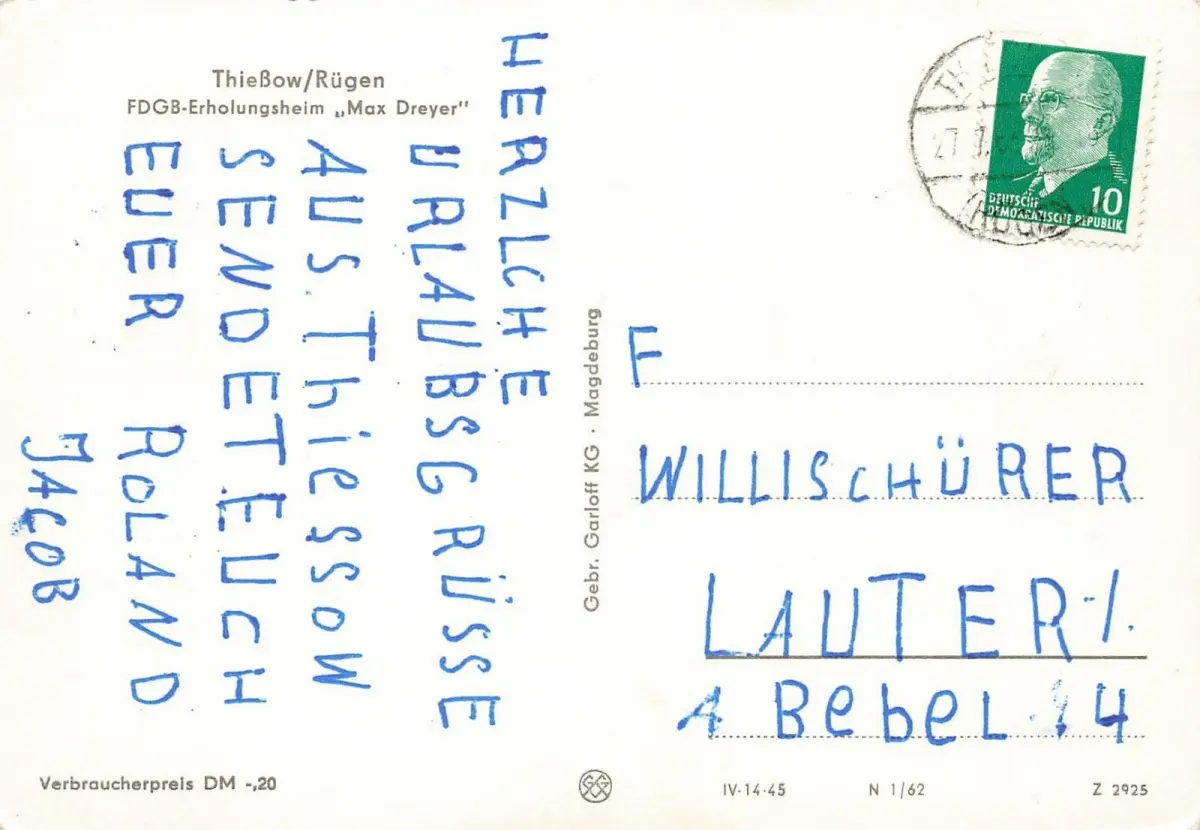 Thießow/Rügen
FDGB-Erholungsheim „Max Dreyer"
HERZLCHE
URLAUBSGRÜSSE
AUS.ThiessoW
SENDETEUCH
EUER ROLAND
JACOB
Gebr. Garloff KG · Magdeburg
DEUTSCHE
DEMOKRATISCHE REPUBLIK
10
F
WILLISCHÜRER
LAUTER-/.
A BebeL 14
Verbraucherpreis DM -,20
IV-14-45 N 1/62 Z 2925